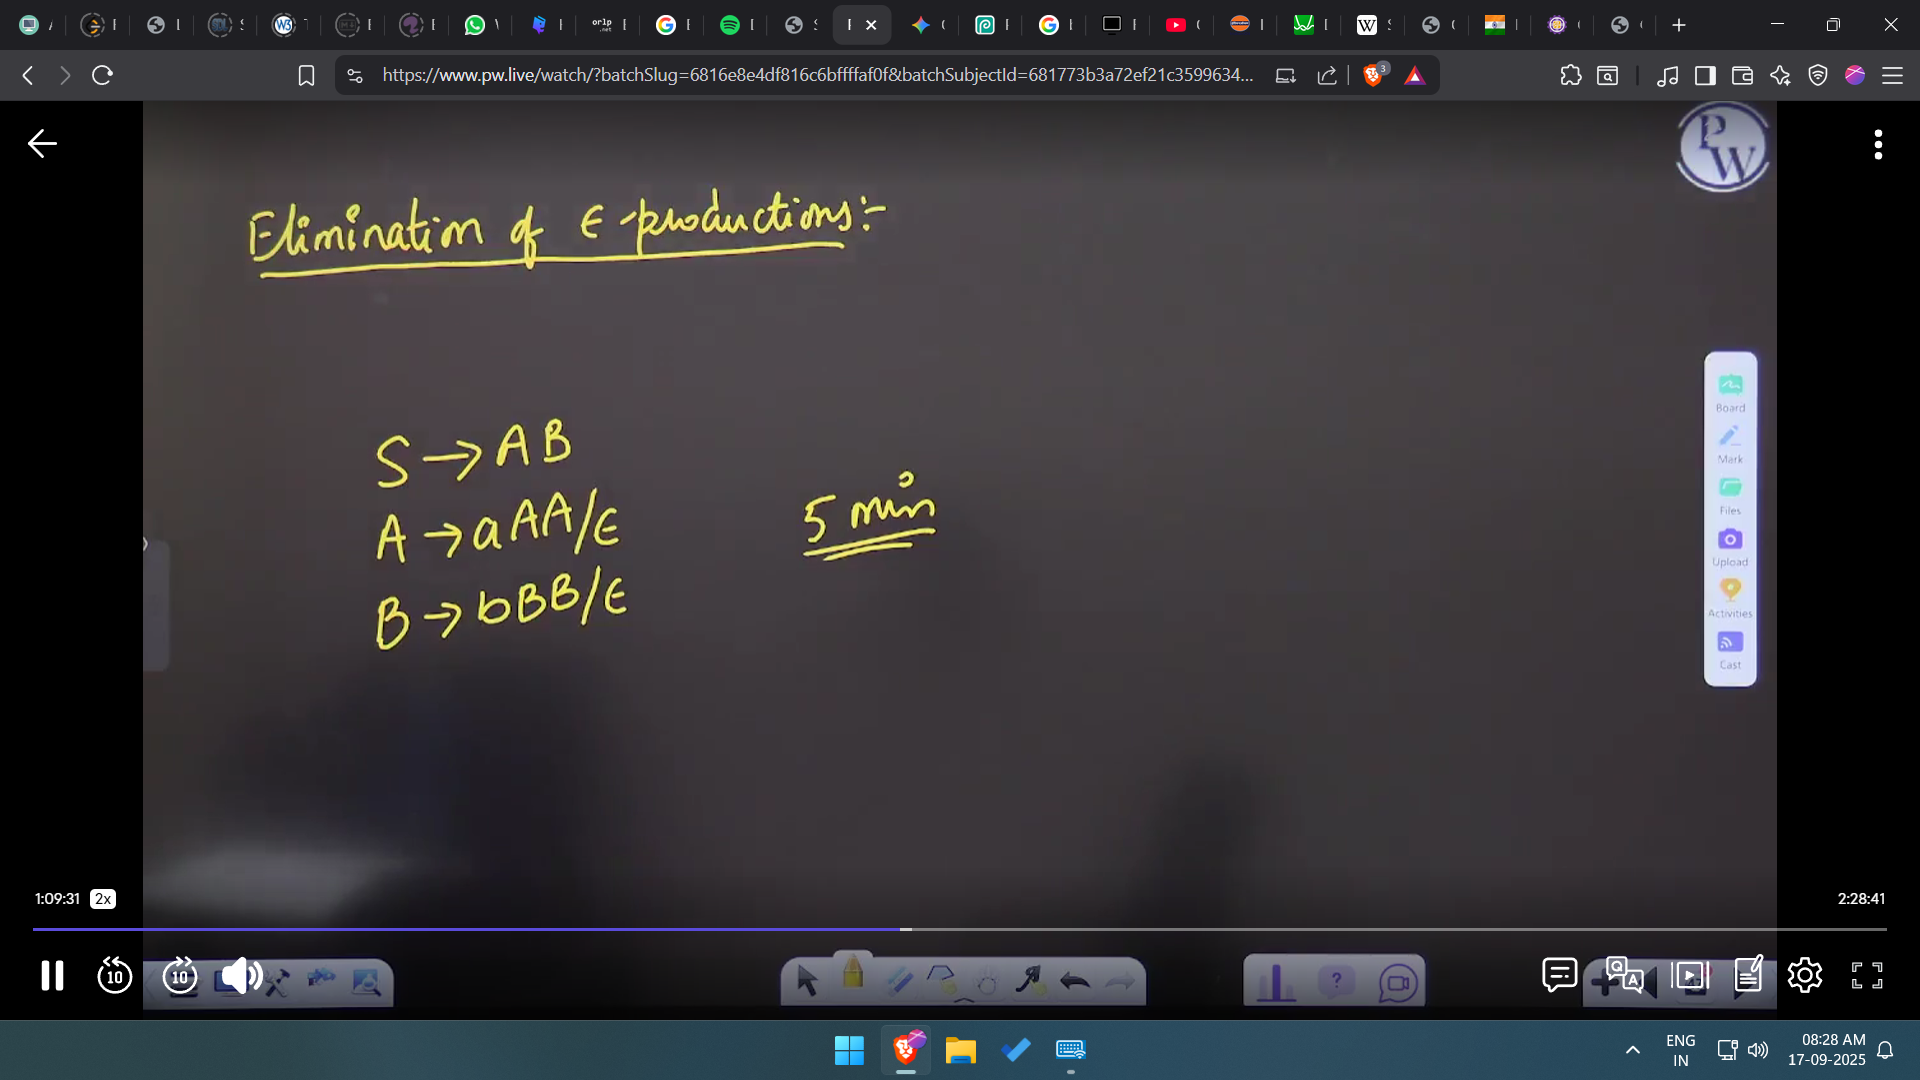 https://www.pw.live/watch/?batchSlug=6816e8e4df816c6bffffaf0f&batchSubjectId=681773b3a72ef21c3599634...
3
PW
Elimination of ϵ-productions:-
S → AB
A → aAA/ϵ
B → bBB/ϵ
5 min
Board
Mark
Files
Upload
Activities
Cast
1:09:31 2x
2:28:41
10 10
ENG
IN
08:28 AM
17-09-2025